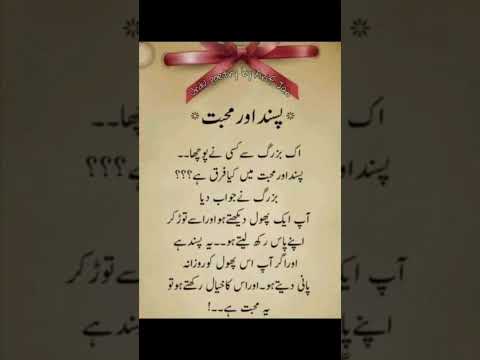 Urdu poetry by
پسند اور محبت
اک بزرگ سے کسی نے پوچھا۔۔
پسند اور محبت میں کیا فرق ہے؟؟؟
بزرگ نے جواب دیا
آپ ایک پھول دیکھتے ہو اور اسے توڑ کر
اپنے پاس رکھ لیتے ہو۔۔ یہ پسند ہے
اور اگر آپ اس پھول کو روزانہ
پانی دیتے ہو۔ اور اس کا خیال رکھتے ہو تو
یہ محبت ہے۔۔!
آپ ا
اپنے پا
ڑ کر
سند ہے